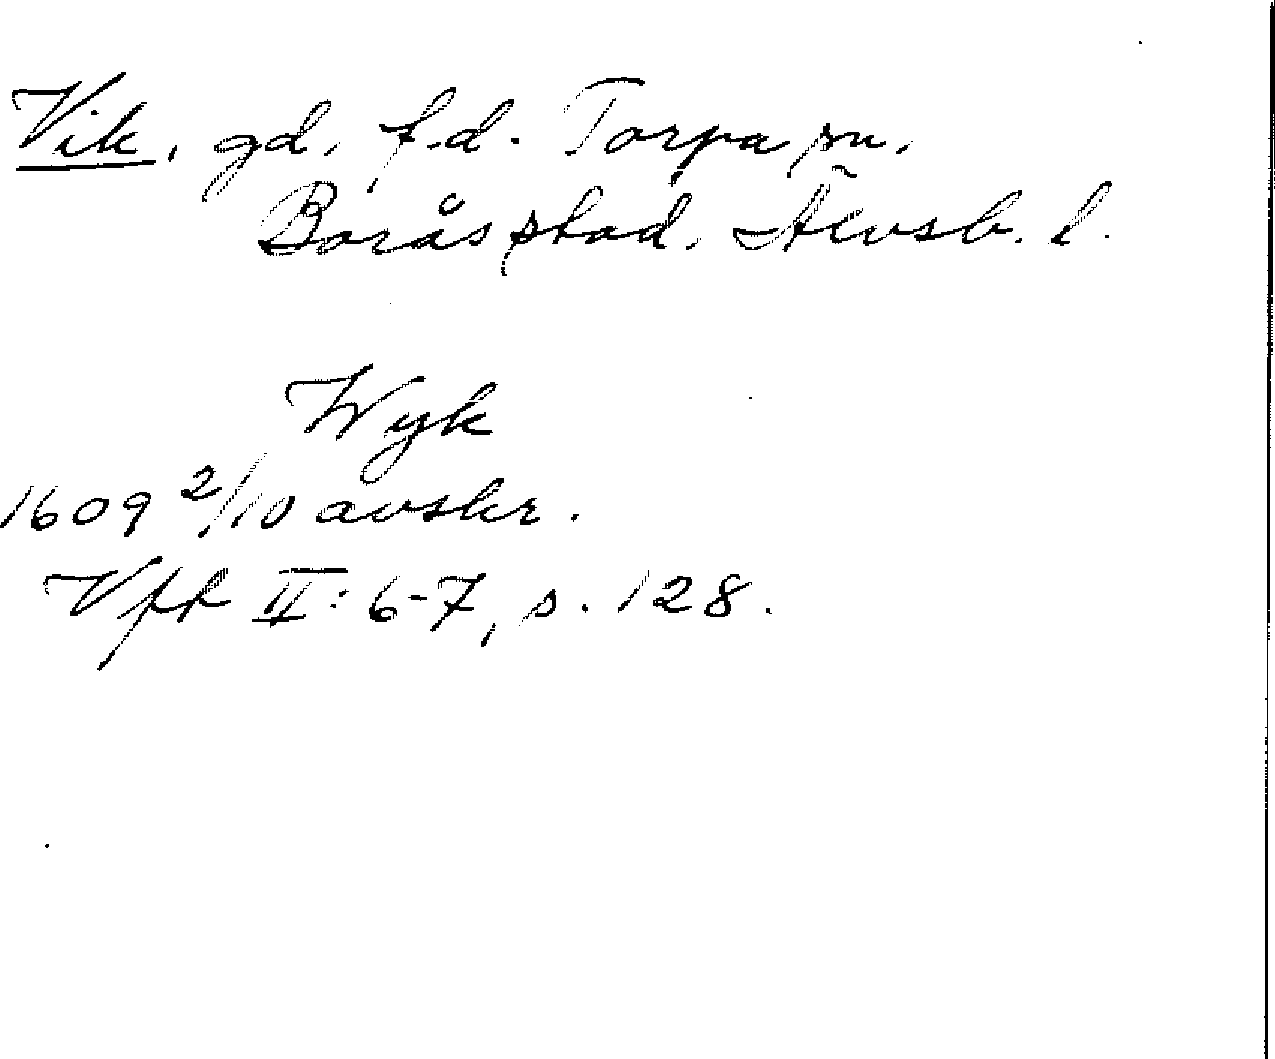 Vik, gd, f.d. Torpa sn,
Borås stad, Älvsb. l.
Wyk
1609 2/10 avskr.
Vff II: 6-7, s. 128.